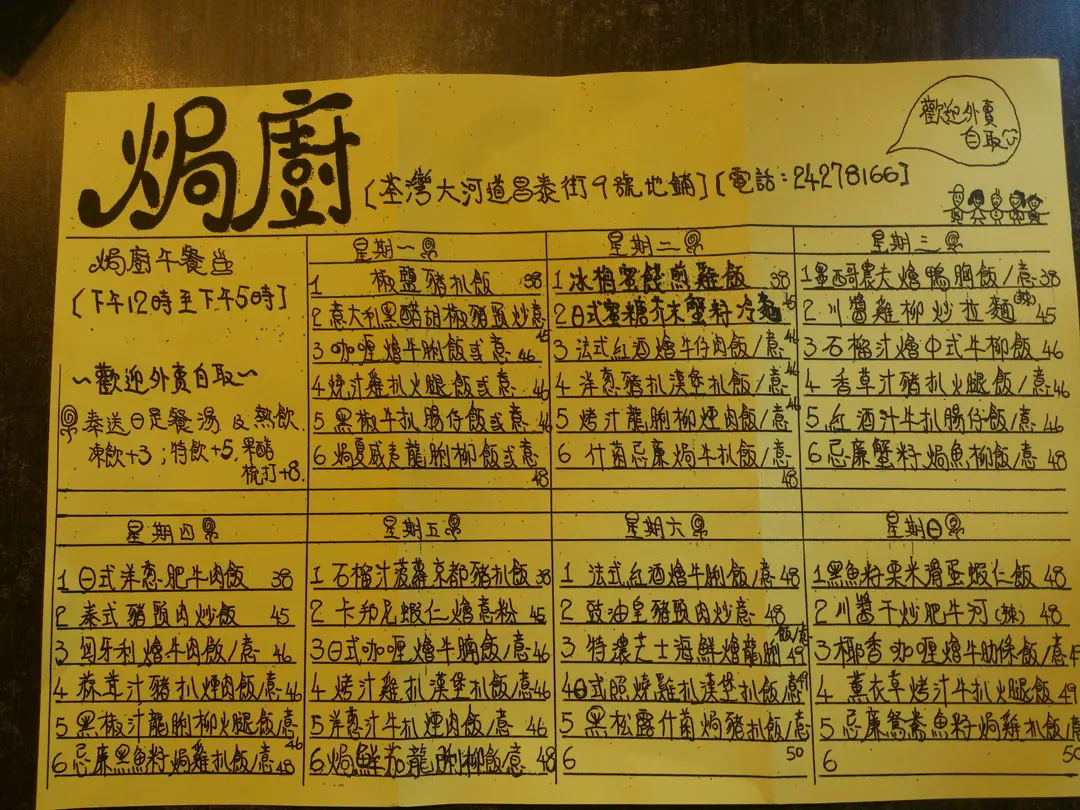 焗廚
[荃灣大河道昌泰街9號地鋪] [電話:24278166]
歡迎外賣
自取
焗廚午餐
[下午12時至下午5時]
~歡迎外賣自取~
奉送日是餐湯及熱飲
凍飲+3;特飲+5,果醋
梳打+8.
星期一
1 椒鹽豬扒飯 38
2 意大利黑醋胡椒豬頸炒意 45
3 咖喱燴牛脷飯或意 46
4 燒汁雞扒火腿飯或意 46
5 黑椒牛扒腸仔飯或意 46
6 焗夏威夷龍脷柳飯或意 48
星期二
1 冰梅蜜餞煎雞飯 38
2 日式蜜糖芥末蟹籽冷麵 45
3 法式紅酒燴牛仔肉飯/意 46
4 洋蔥豬扒漢堡扒飯/意 46
5 烤汁龍脷柳煙肉飯/意 46
6 什菌忌廉焗牛扒飯/意 48
星期三
1 墨西哥濃大燴鴨胸飯/意 38
2 川醬雞柳炒拉麵(辣) 45
3 石榴汁燴中式牛柳飯 46
4 香草汁豬扒火腿飯/意 46
5 紅酒汁牛扒腸仔飯/意 46
6 忌廉蟹籽焗魚柳飯/意 48
星期四
1 日式洋蔥肥牛肉飯 38
2 泰式豬頸肉炒飯 45
3 匈牙利燴牛肉飯/意 46
4 蒜茸汁豬扒煙肉飯/意 46
5 黑椒汁龍脷柳火腿飯/意 46
6 忌廉黑魚籽焗雞扒飯/意 48
星期五
1 石榴汁菠蘿京都豬扒飯 38
2 卡邦尼蝦仁燴意粉 45
3 日式咖喱燴牛腩飯/意 46
4 烤汁雞扒漢堡扒飯/意 46
5 洋蔥汁牛扒煙肉飯/意 46
6 焗鮮茄龍脷柳飯/意 48
星期六
1 法式紅酒燴牛脷飯/意 48
2 豉油皇豬頸肉炒意 48
3 特濃芝士海鮮燴龍脷飯/意 49
4 日式照燒雞扒漢堡扒飯/意 49
5 黑松露什菌焗豬扒飯/意 50
6
星期日
1 黑魚籽粟米滑蛋蝦仁飯 48
2 川醬干炒肥牛河(辣) 48
3 椰香咖喱燴牛肋條飯/意 49
4 薰衣草烤汁牛扒火腿飯 49
5 忌廉鴛鴦魚籽焗雞扒飯/意 50
6